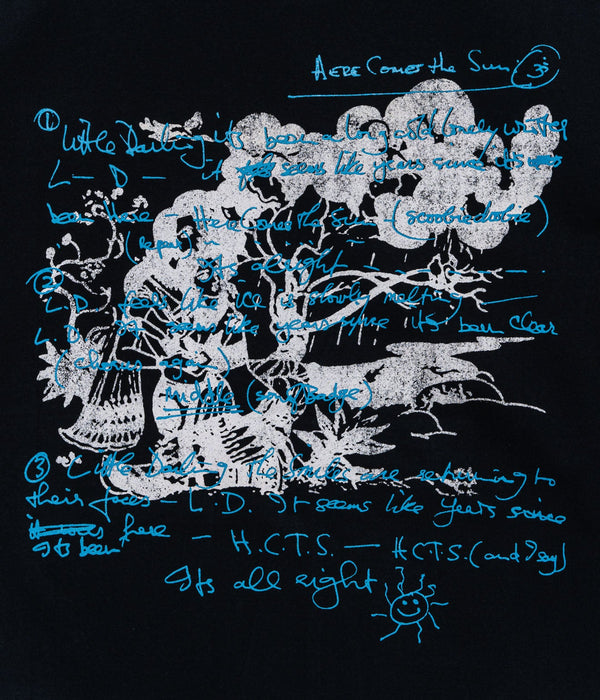 HERE COMES the Sun. 3
1 Little Darling it's been a long cold lonely winter
L — D — it seems like years since its
been here — Here Comes the Sun — (scoobie doobie)
(repeat)
Its alright — — — —
2 L.D. feels like ice is slowly melting —
L.D. It seems like years since its been clear
(chorus again)
Middle (song Badge)
3 Little Darling the smiles are returning to
their faces — L.D. It seems like years since
Its been here — H.C.T.S. — H.C.T.S. (and I say)
Its all right